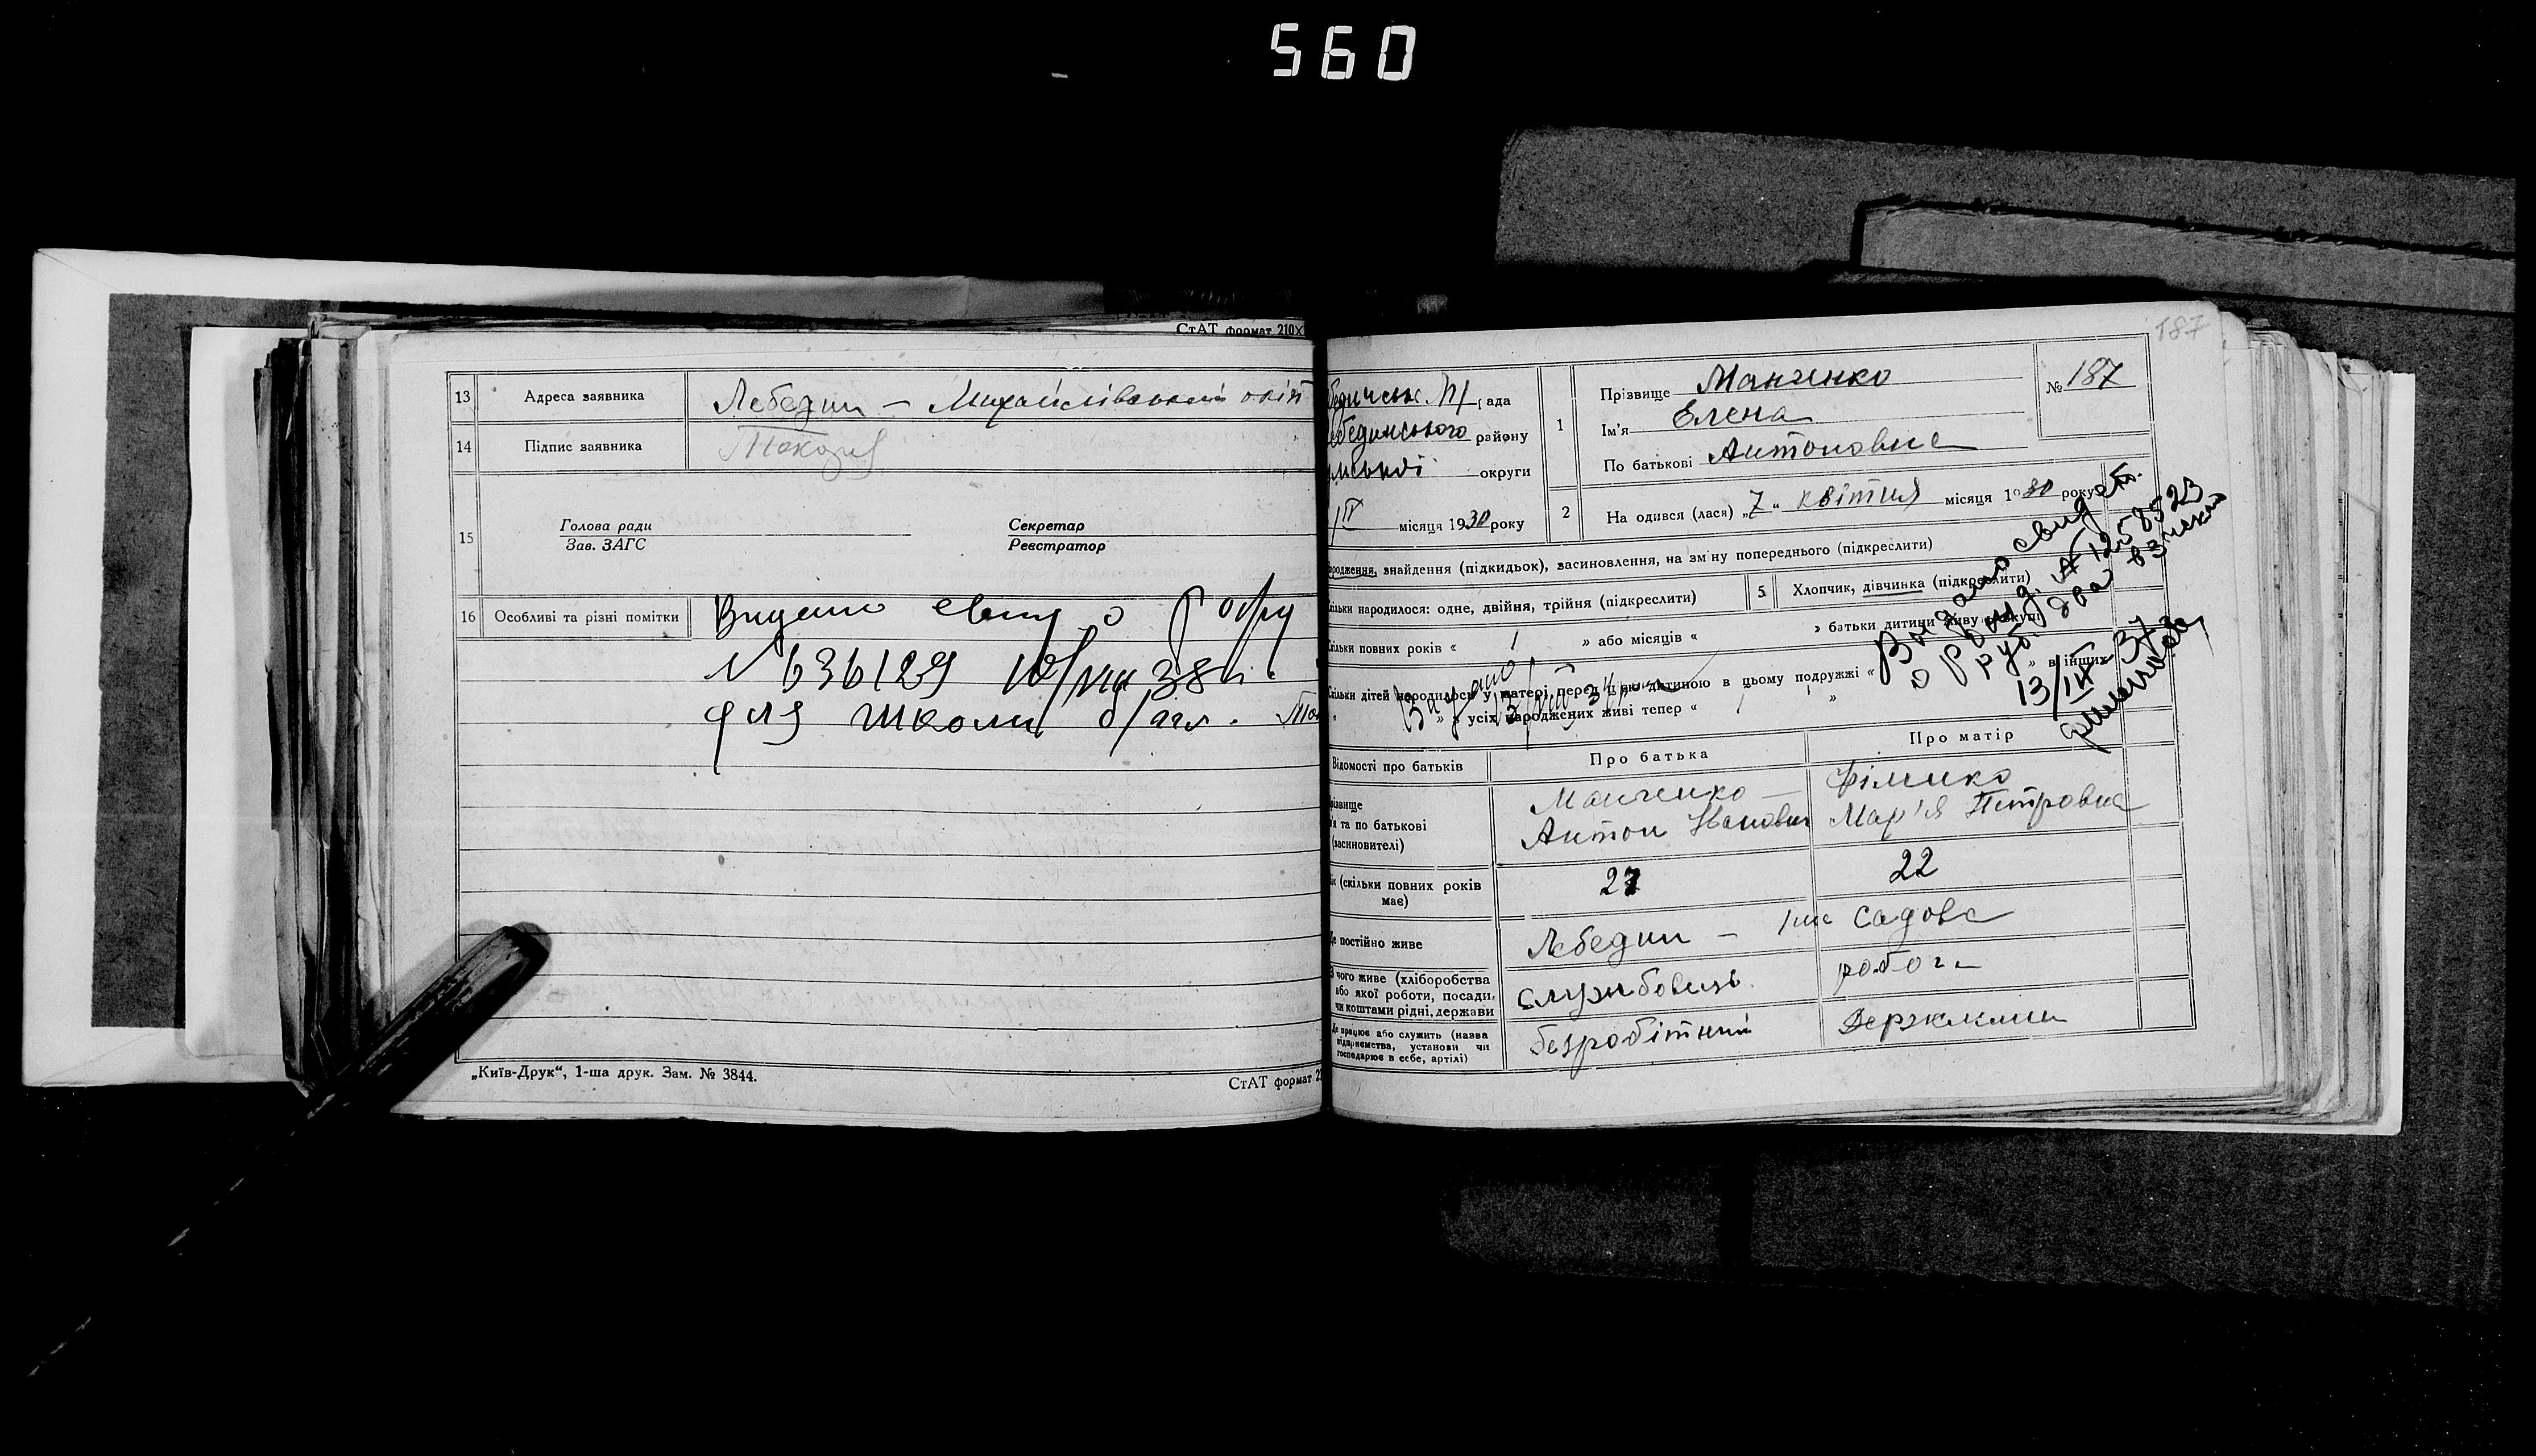 560
СтАТ формат 210×
13 Адреса заявника Лебедин – Михайлівський
14 Підпис заявника
15 Голова ради Секретар
Зав. ЗАГС Реєстратор
16 Особливі та різні помітки Видано свид о
№ 636129 10/VIII 38
для школи
„Київ-Друк“, 1-ша друк. Зам. № 3844.
СтАТ формат 2
187
рада
бединського району
округи
IV місяця 1930 року
1 Прізвище Манченко
Ім'я Елена
По батькові Антоновна
№ 187
2 На одився (лася) „7“ квітня місяця 1930 року
родження, знайдення (підкидьок), засиновлення, на зм ну попереднього (підкреслити)
кільки народилося: одне, двійня, трійня (підкреслити)
5. Хлопчик, дівчинка (підкреслити)
кільки повних років « 1 » або місяців « » батьки дитини живу вкупі
кільки дітей народилось у матері перед цією дитиною в цьому подружжі « » в інших
» з усіх народжених живі тепер « »
Выдано свидет.
о рожд. № 1258523
руб. два взыскан
13/IX-37
Відомості про батьків Про батька Про матір
різвище Манченко Філенко
'я та по батькові Антон Іванович Мар'я Петровна
(засиновителі)
ік (скільки повних років має) 27 22
е постійно живе Лебедин – Садова
З чого живе (хліборобства
або якої роботи, посади,
чи коштами рідні, держави службовець
Де працює або служить (назва
підприємства, установи чи
господарює в себе, артілі) безробітний